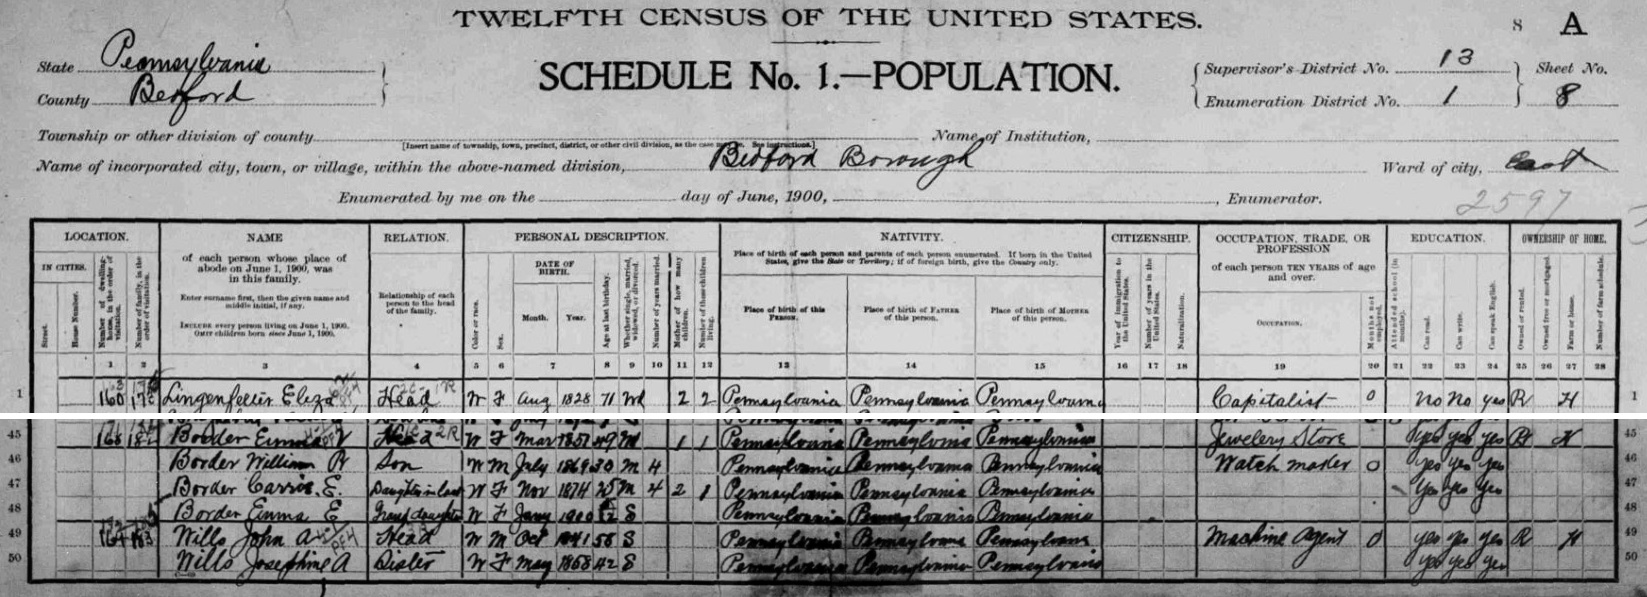 TWELFTH CENSUS OF THE UNITED STATES.
8 A
State Pennsylvania
County Bedford
SCHEDULE No. 1.—POPULATION.
Supervisor's District No. 13
Enumeration District No. 1
Sheet No.
8
Township or other division of county
[Insert name of township, town, precinct, district, or other civil division, as the case may be. See instructions.]
Name of Institution,
Name of incorporated city, town, or village, within the above-named division, Bedford Borough
Ward of city, East
Enumerated by me on the day of June, 1900, , Enumerator.
2597
LOCATION.
IN CITIES.
Street.
House Number.
Number of dwelling-house, in the order of visitation.
Number of family, in the order of visitation.
NAME
of each person whose place of abode on June 1, 1900, was in this family.
Enter surname first, then the given name and middle initial, if any.
INCLUDE every person living on June 1, 1900.
OMIT children born since June 1, 1900.
RELATION.
Relationship of each person to the head of the family.
PERSONAL DESCRIPTION.
Color or race.
Sex.
DATE OF BIRTH.
Month. Year.
Age at last birthday.
Whether single, married, widowed, or divorced.
Number of years married.
Mother of how many children.
Number of these children living.
NATIVITY.
Place of birth of each person and parents of each person enumerated. If born in the United States, give the State or Territory; if of foreign birth, give the Country only.
Place of birth of this PERSON.
Place of birth of FATHER of this person.
Place of birth of MOTHER of this person.
CITIZENSHIP.
Year of immigration to the United States.
Number of years in the United States.
Naturalization.
OCCUPATION, TRADE, OR PROFESSION
of each person TEN YEARS of age and over.
OCCUPATION.
Months not employed.
EDUCATION.
Attended school (in months).
Can read.
Can write.
Can speak English.
OWNERSHIP OF HOME.
Owned or rented.
Owned free or mortgaged.
Farm or house.
Number of farm schedule.
1 2 3 4 5 6 7 8 9 10 11 12 13 14 15 16 17 18 19 20 21 22 23 24 25 26 27 28
1 160 Lingenfelter Eliza Head W F Aug 1828 71 Wd 2 2 Pennsylvania Pennsylvania Pennsylvania Capitalist 0 no no yes R H 1
45 168 182 Border Emma V Head W F Mar 49 1 1 Pennsylvania Pennsylvania Pennsylvania Jewelery Store yes yes yes H 45
46 Border William W Son W M July 1869 30 M 4 Pennsylvania Pennsylvania Pennsylvania Watch maker 0 yes yes yes 46
47 Border Carrie E. Daughter in law W F Nov 1874 25 M 4 2 1 Pennsylvania Pennsylvania Pennsylvania yes yes yes 47
48 Border Emma E Grand daughter W F Jany 1900 S Pennsylvania Pennsylvania Pennsylvania 48
49 169 183 Wills John A Head W M Oct 1841 58 S Pennsylvania Pennsylvania Pennsylvania Machine Agent 0 yes yes yes R H 49
50 Wills Josephine A Sister W F May 1858 42 S Pennsylvania Pennsylvania Pennsylvania yes yes yes 50